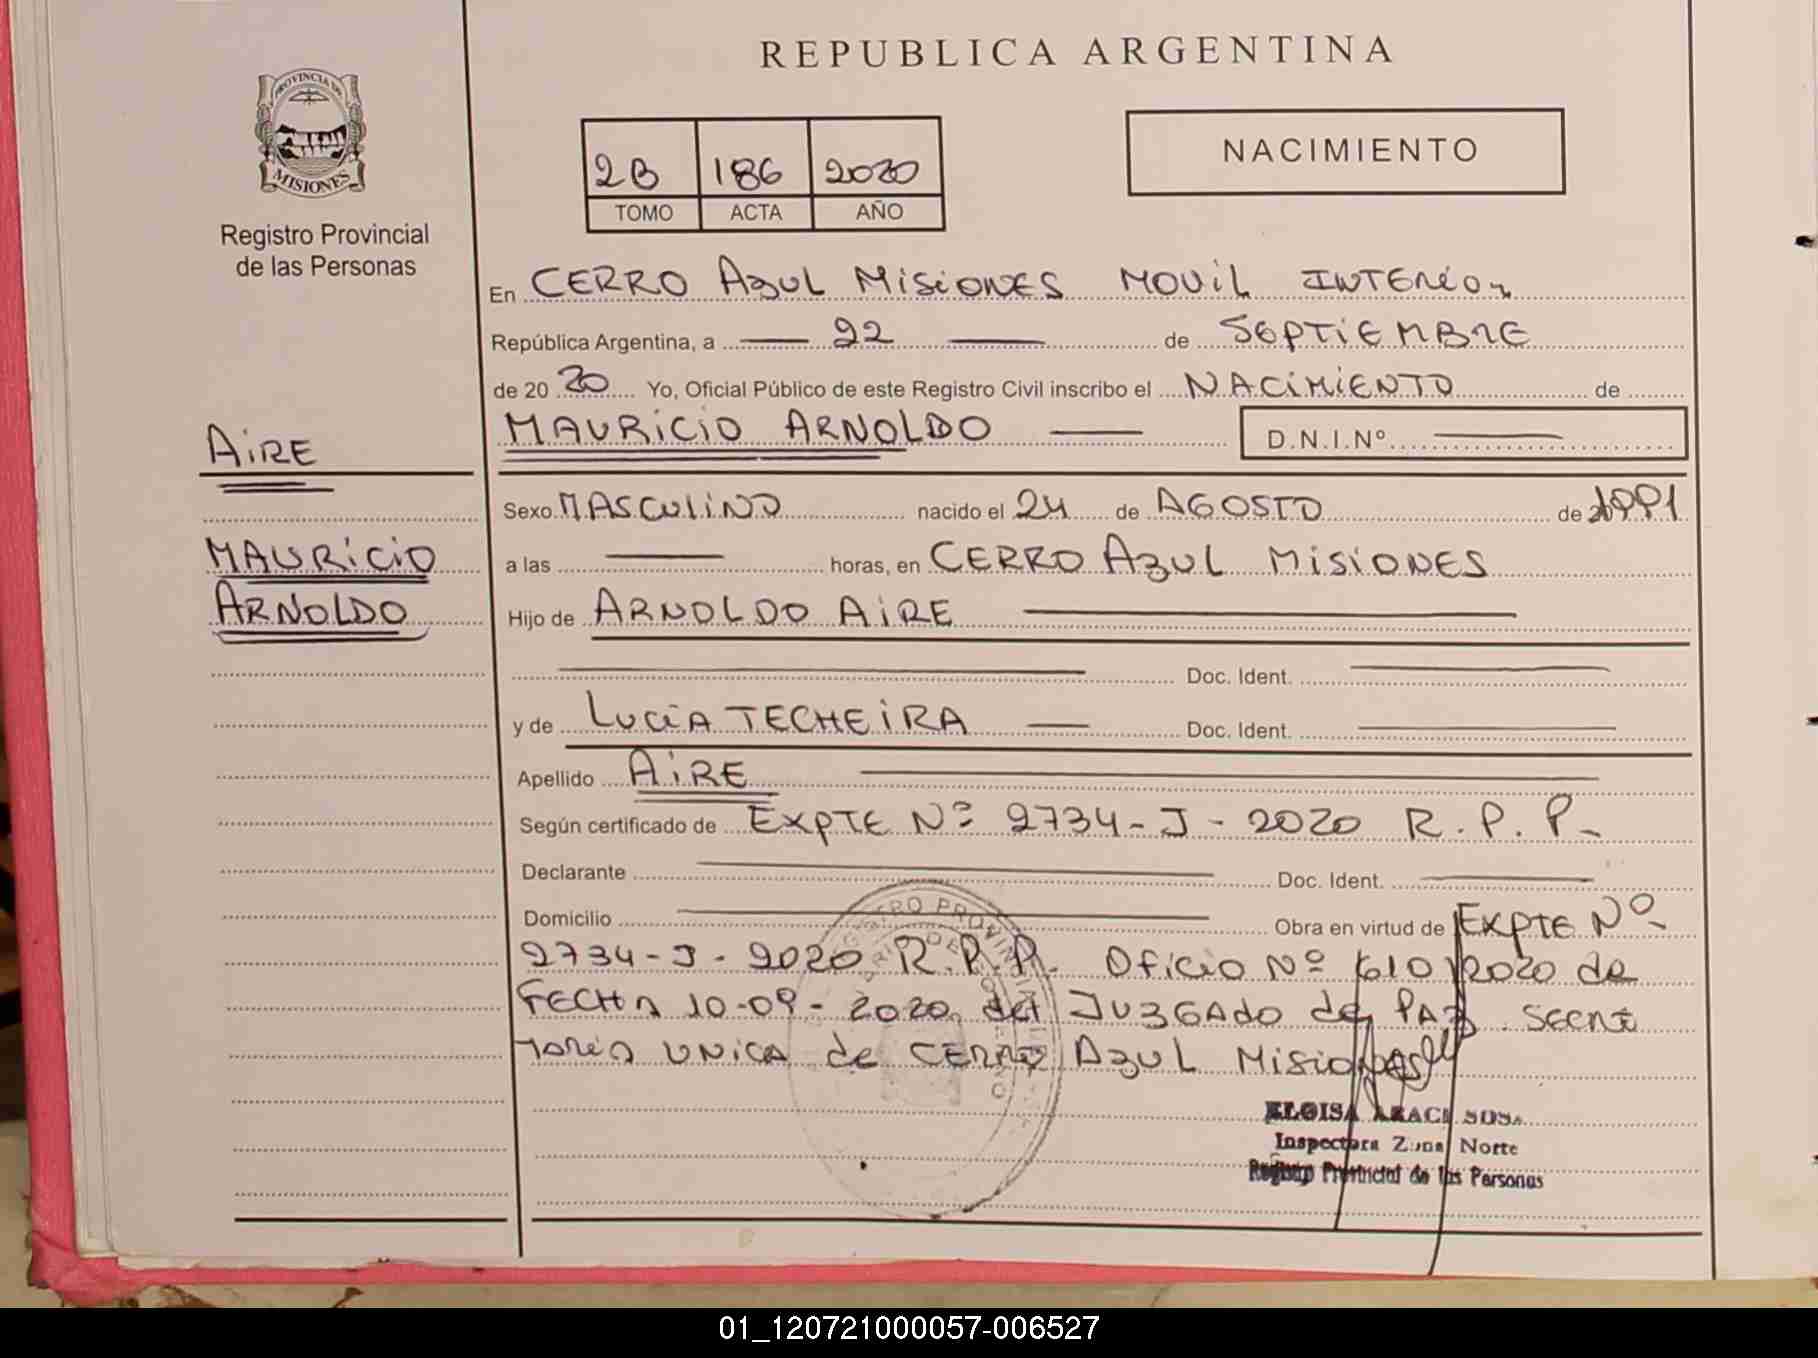 REPUBLICA ARGENTINA
PROVINCIA DE
MISIONES
Registro Provincial
de las Personas
2B 186 2020
TOMO ACTA AÑO
NACIMIENTO
En CERRO AZUL MISIONES MOVIL INTERIOR
República Argentina, a 22 de SEPTIEMBRE
de 20 20 Yo, Oficial Público de este Registro Civil inscribo el NACIMIENTO de
AIRE
MAURICIO ARNOLDO D.N.I.Nº
Sexo MASCULINO nacido el 24 de AGOSTO de 1991
MAURICIO
ARNOLDO
a las horas, en CERRO AZUL MISIONES
Hijo de ARNOLDO AIRE
Doc. Ident.
y de LUCIA TECHEIRA Doc. Ident.
Apellido AIRE
Según certificado de EXPTE Nº 2734-J-2020 R.P.P.
Declarante Doc. Ident.
Domicilio Obra en virtud de EXPTE Nº
2734-J-2020 R.P.P. Oficio Nº 610/2020 de
FECHA 10-09-2020 del JUZGADO de PAZ SECRE
TARIA UNICA de CERRO AZUL MISIONES
ELOISA ARACI SOSA
Inspectora Zona Norte
Registro Provincial de las Personas
01_120721000057-006527